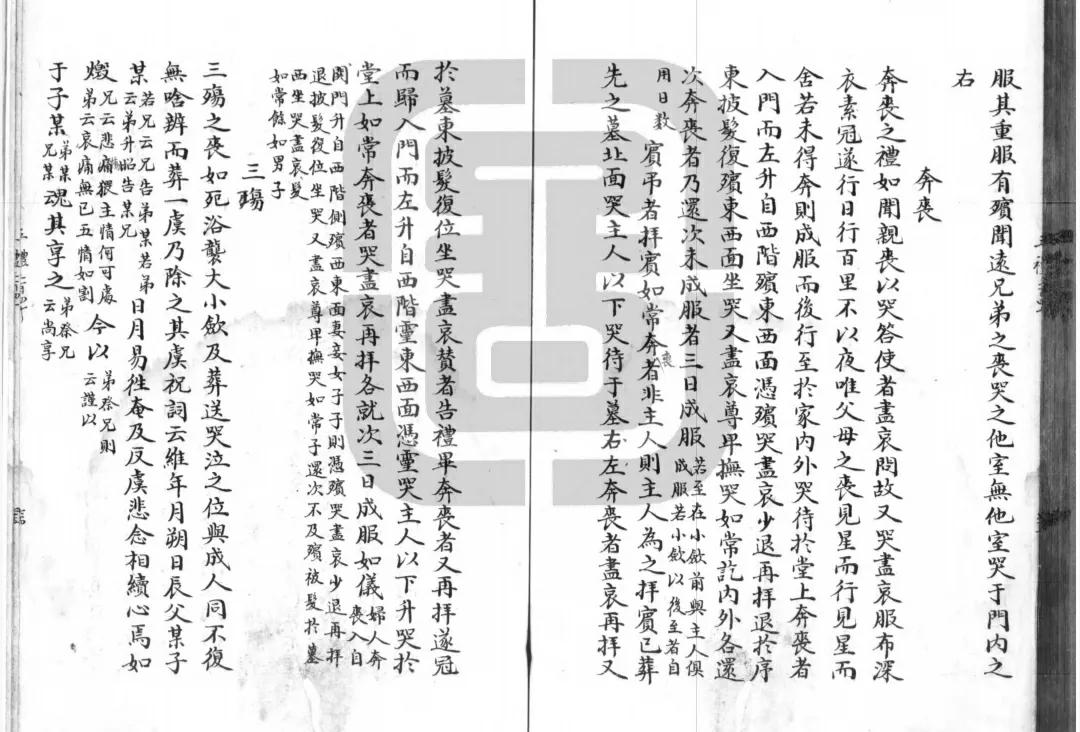 服其重服有殯聞遠兄弟之喪哭之他室無他室哭于門內之
右
奔喪
奔喪之禮如聞親喪以哭答使者盡哀問故又哭盡哀服布深
衣素冠遂行日行百里不以夜唯父母之喪見星而行見星而
舍若未得奔則成服而後行至於家內外哭待於堂上奔喪者
入門而左升自西階殯東西面憑殯哭盡哀少退再拜退於序
東披髮復殯東西面坐哭又盡哀尊卑撫哭如常訖內外各還
次奔喪者乃還次未成服者三日成服若至在小歛前與主人俱
成服若小歛以後至者自
用日數
賓弔者拜賓如常奔喪者非主人則主人為之拜賓已葬
先之墓北面哭主人以下哭待于墓右左奔喪者盡哀再拜又
於墓東披髮復位坐哭盡哀贊者告禮畢奔喪者又再拜遂冠
而歸入門而左升自西階靈東西面憑靈哭主人以下升哭於
堂上如常奔喪者哭盡哀再拜各就次三日成服如儀婦人奔
喪入自
闕門升自西階側殯西東面妻妾女子子則憑殯哭盡哀少退再拜
退披髮復位坐哭又盡哀尊卑撫哭如常子還次不及殯被髮於墓
西坐哭盡哀髮
如常餘如男子
三殤
三殤之喪如死浴襲大小歛及葬送哭泣之位與成人同不復
無唅辨而葬一虞乃除之其虞祝詞云維年月朔日辰父某子
某若兄云兄告弟某若弟
云弟升昭告某兄
日月易徃奄及反虞悲念相續心焉如
燬兄云悲痛猥主情何可處
弟云哀痛無已五情如割
今以弟祭兄則
云謹以
于子某弟某
兄某
魂其享之弟祭兄
云尚享